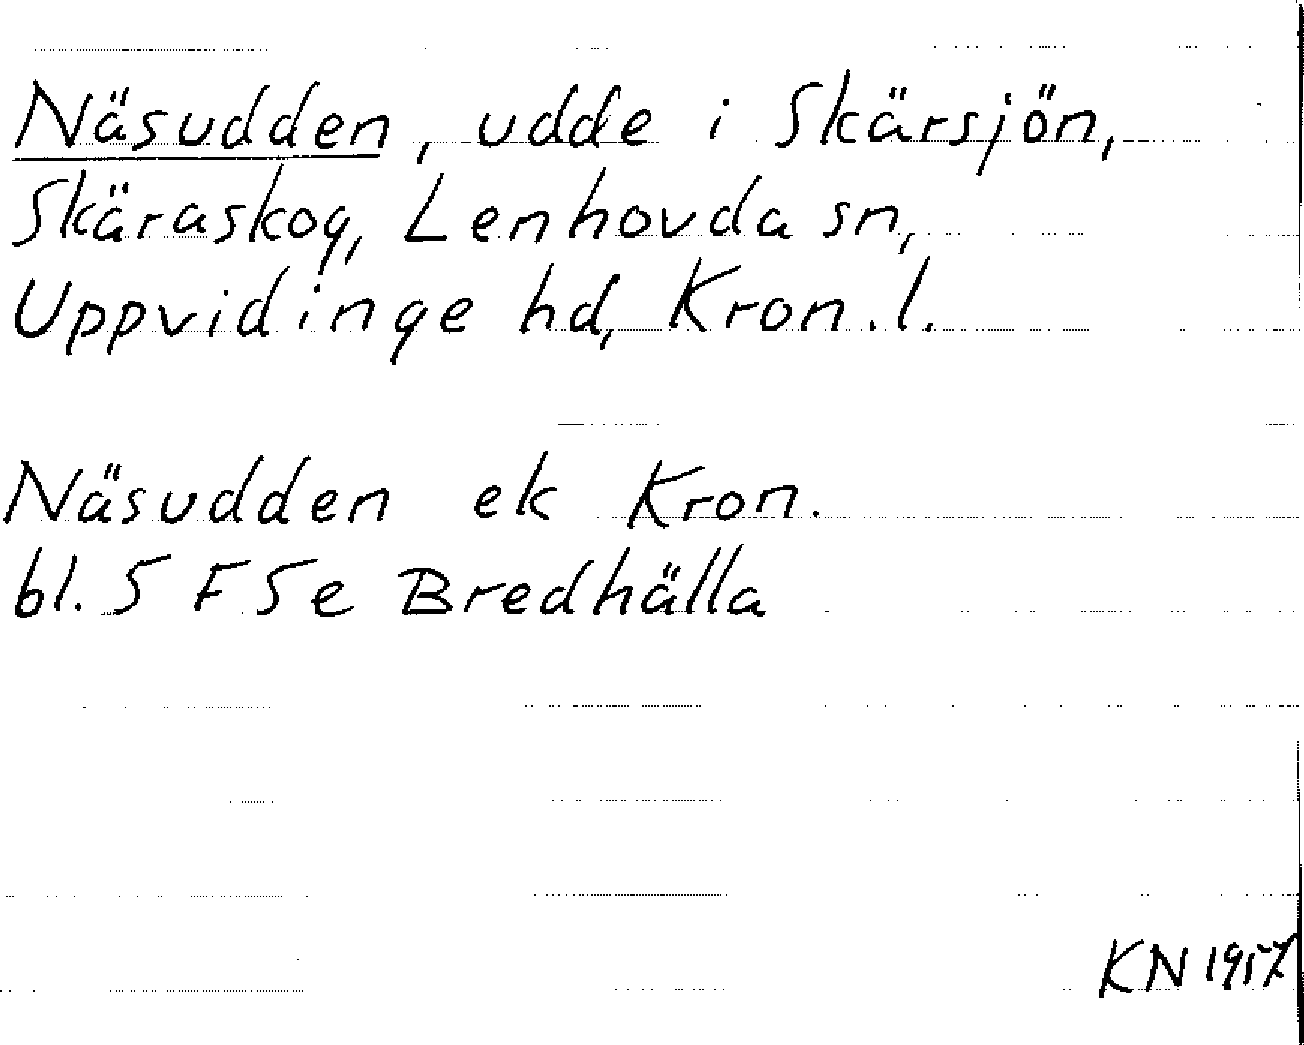 Näsudden, udde i Skärsjön,
Skäraskog, Lenhovda sn,
Uppvidinge hd, Kron.l.
Näsudden ek Kron.
bl. 5 F 5e Bredhälla
KN 1957